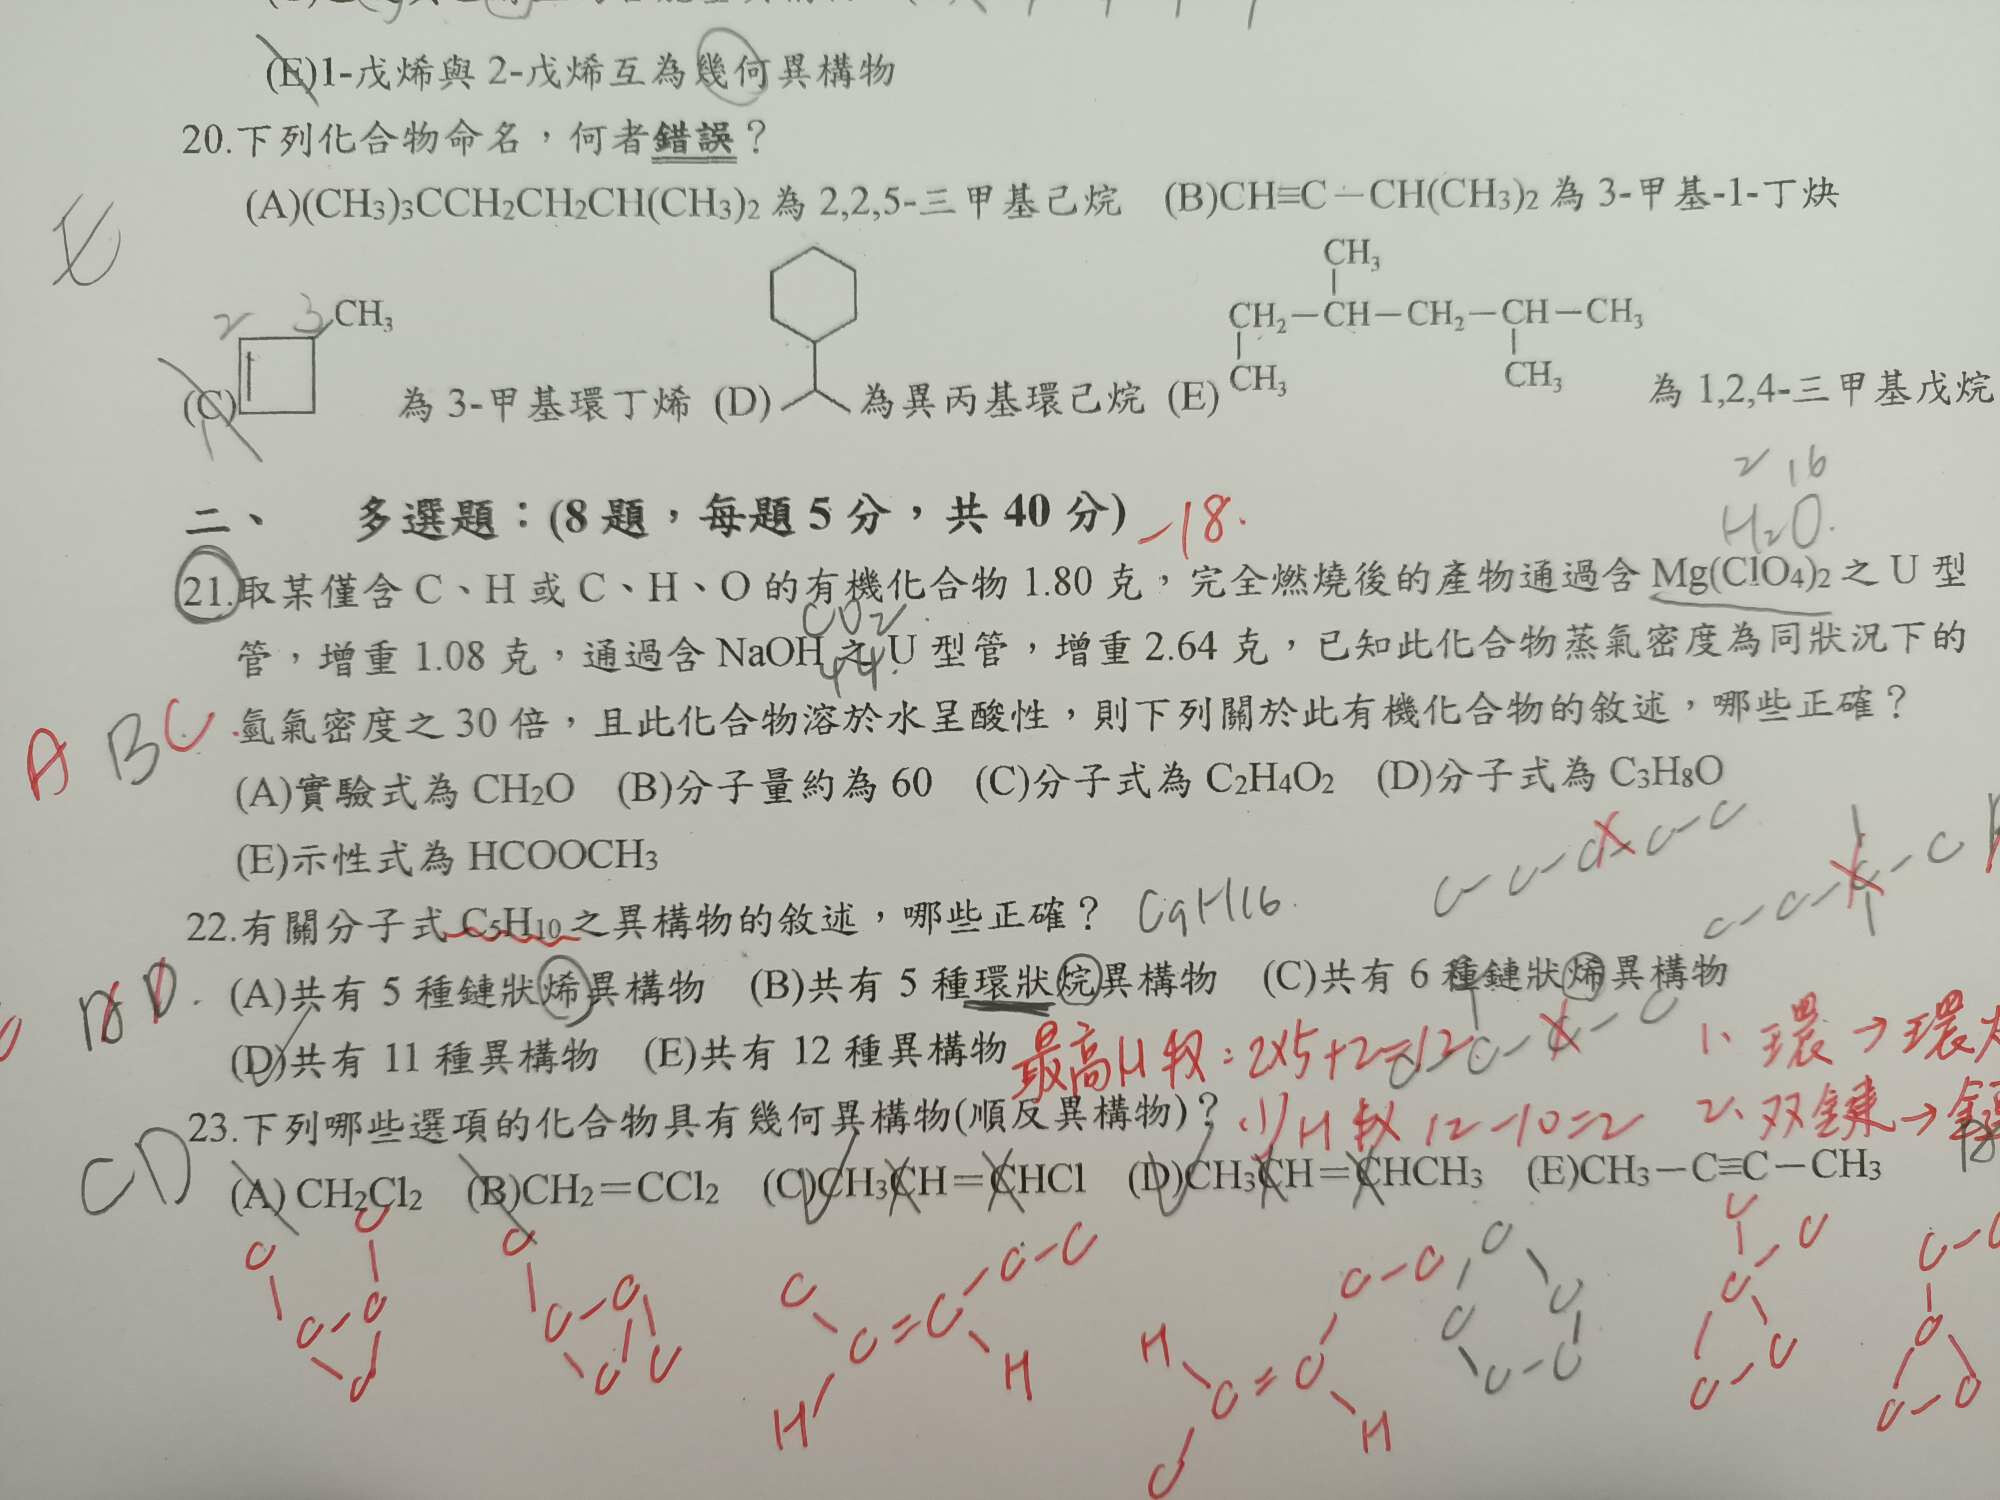 (E)1-戊烯與 2-戊烯互為幾何異構物
20.下列化合物命名，何者錯誤？
E
(A)(CH3)3CCH2CH2CH(CH3)2 為 2,2,5-三甲基己烷 (B)CH≡C－CH(CH3)2 為 3-甲基-1-丁炔
CH3
2 3 CH3
CH2－CH－CH2－CH－CH3
CH3 CH3
(C) 為 3-甲基環丁烯 (D) 為異丙基環己烷 (E) 為 1,2,4-三甲基戊烷
2 16
H2O.
二、 多選題：(8 題，每題 5 分，共 40 分) -18.
21.取某僅含 C、H 或 C、H、O 的有機化合物 1.80 克，完全燃燒後的產物通過含 Mg(ClO4)2 之 U 型
CO2
管，增重 1.08 克，通過含 NaOH 之 U 型管，增重 2.64 克，已知此化合物蒸氣密度為同狀況下的
44
A B C
氫氣密度之 30 倍，且此化合物溶於水呈酸性，則下列關於此有機化合物的敘述，哪些正確？
(A)實驗式為 CH2O (B)分子量約為 60 (C)分子式為 C2H4O2 (D)分子式為 C3H8O
(E)示性式為 HCOOCH3
C－C－C－C－C
C－C－C－C
22.有關分子式 C5H10 之異構物的敘述，哪些正確？ C9H16.
D.
(A)共有 5 種鏈狀烯異構物 (B)共有 5 種環狀烷異構物 (C)共有 6 種鏈狀烯異構物
(D)共有 11 種異構物 (E)共有 12 種異構物
最高H數：2x5+2=12 1、環→環
C－C－C－C
23.下列哪些選項的化合物具有幾何異構物(順反異構物)？
(1)H數 12-10=2 2、双鍵→
CD
(A) CH2Cl2 (B)CH2＝CCl2 (C)CH3CH＝CHCl (D)CH3CH＝CHCH3 (E)CH3－C≡C－CH3
C C C C C－C C－C C C C C－C
C－C C－C C=C C C C C
C C C H H C=C C C C C C
H C－C C－C C－C
C H